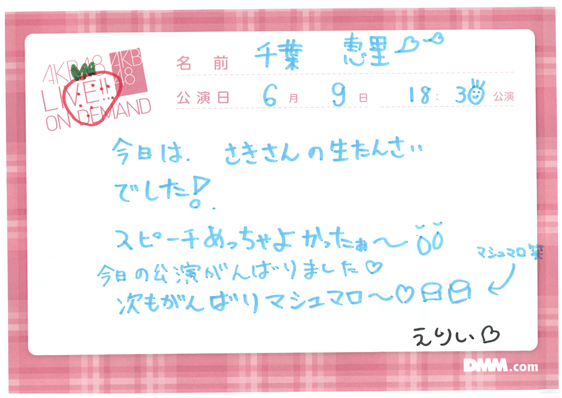 AKB48
LIVE!!
ON DEMAND
AKB
48
名前 千葉 恵里
公演日 6月 9日 18:30 公演
今日は、さきさんの生たんさい
でした!
スピーチめっちゃよかったぁ〜
今日の公演がんばりました♡
マシュマロ笑
次もがんばりマシュマロ〜♡
えりい♡
DMM.com